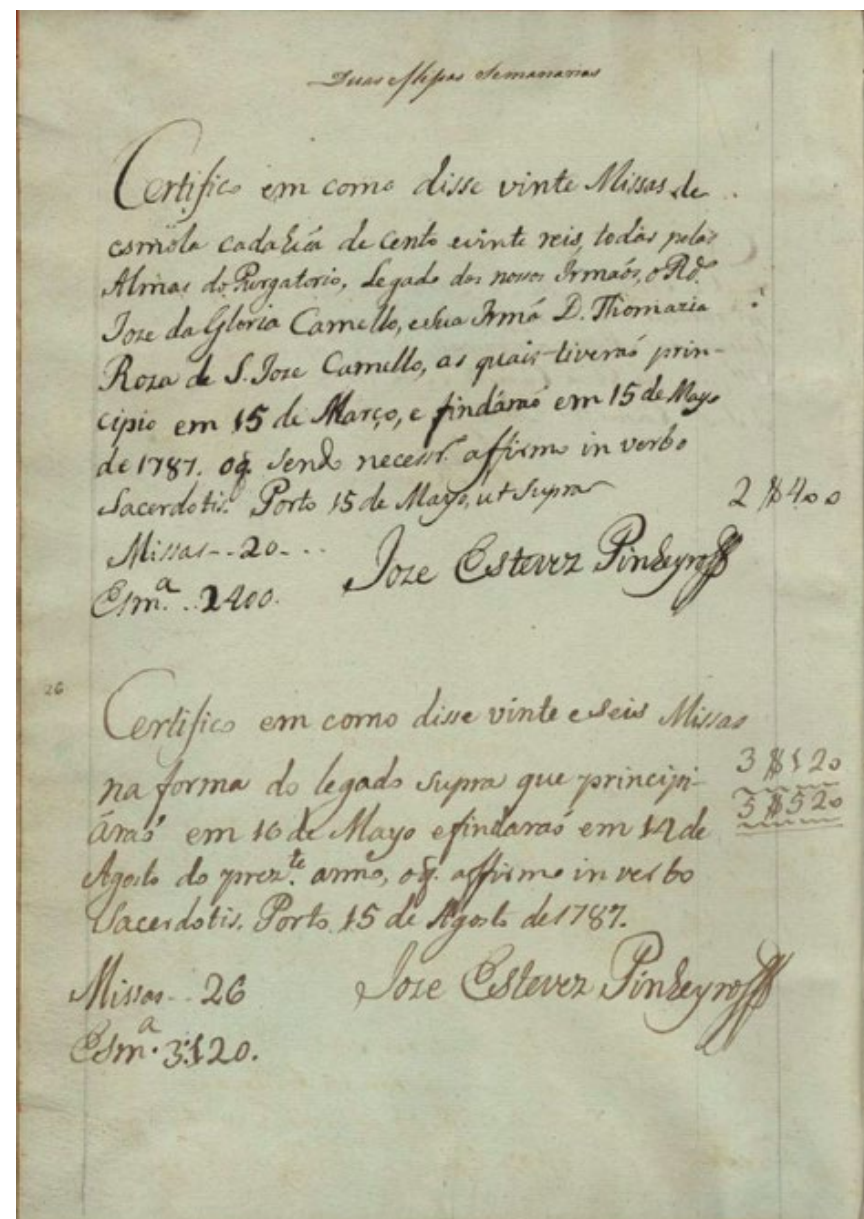 Duas Missas Semanarias
Certifico em como disse vinte Missas de
esmola cada húa de cento evinte reis, todas pelas
Almas do Purgatorio, Legado dos nossos Irmaós, o Rd.º
Joze da Gloria Camello, esua Irmá D. Thomazia
Roza de S. Joze Camello, as quais tiveraó prin-
cipio em 15 de Março, e findáraó em 15 de Mayo
de 1787. oq̃ send.º necessr.º affirmo in verbo
Sacerdotis. Porto 15 de Mayo, ut supra
2$400
Missas - - 20 - . .
Joze Estevez Pinheyro
Esm.ª . . 2400.
26
Certifico em como disse vinte e seis Missas
na forma do legado supra que principi-
áraó em 16 de Mayo efindaraó em 14 de
Agosto do prez.te anno, oq̃. affirmo in verbo
Sacerdotis. Porto 15 de Agosto de 1787.
3$120
5$520
Missas - - 26
Joze Estevez Pinheyro
Esm.ª 3$120.